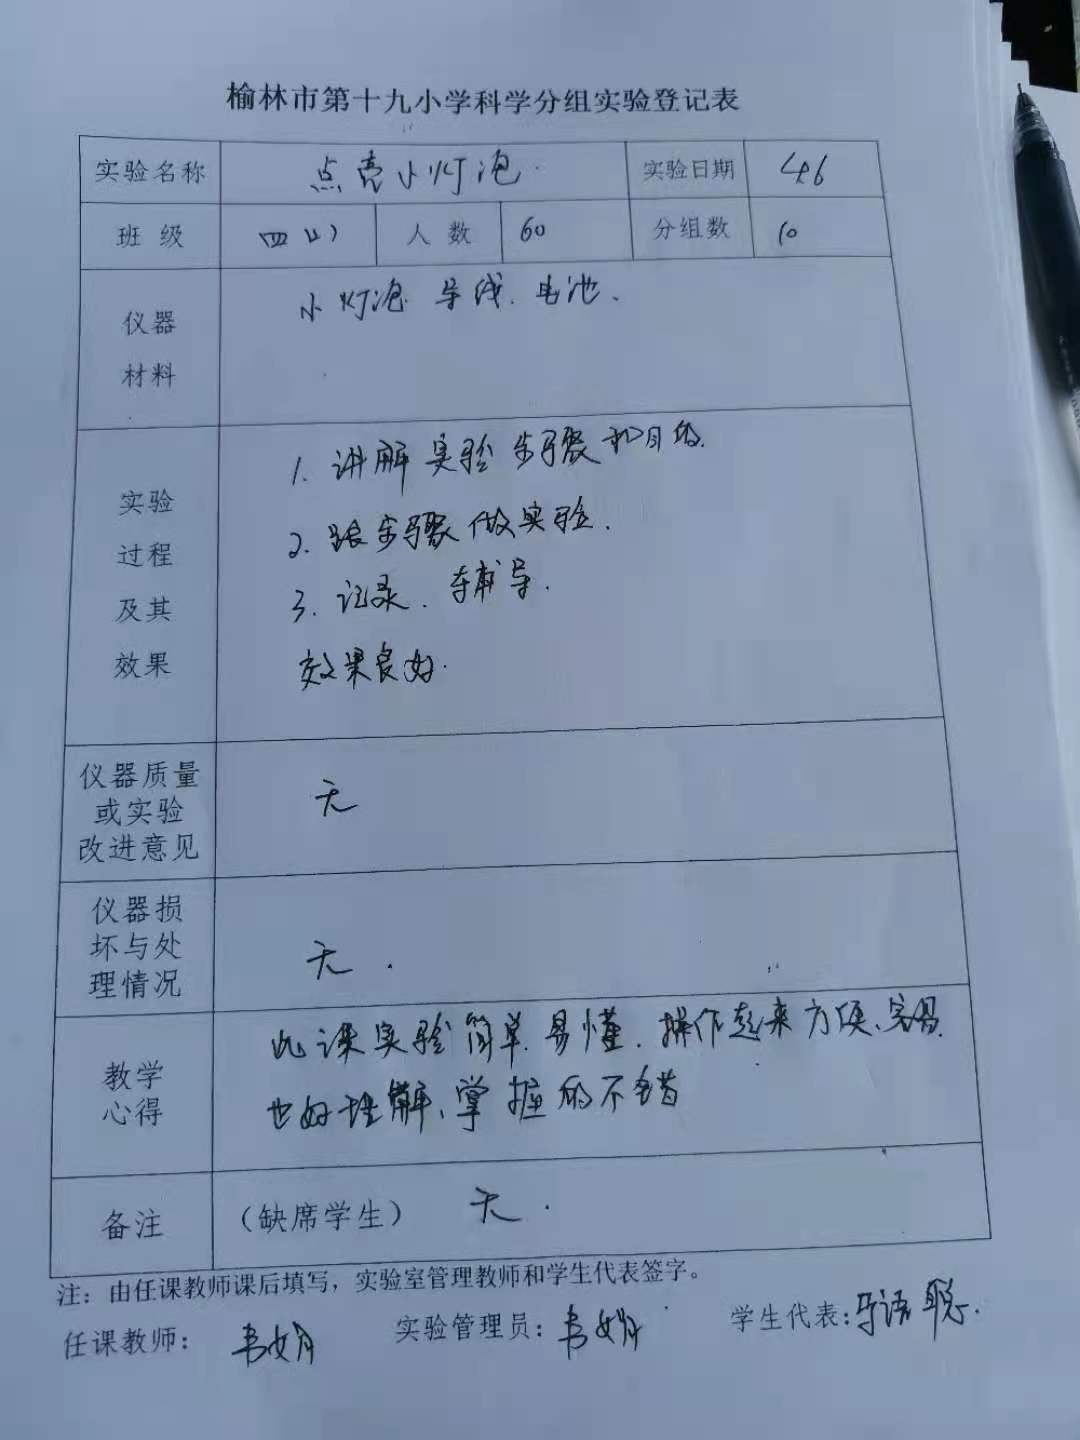 榆林市第十九小学科学分组实验登记表
实验名称 点亮小灯泡. 实验日期 4.6
班 级 四(1) 人 数 60 分组数 10
仪器 小灯泡 导线、电池、
材料
实验 1. 讲解实验步骤和目的.
过程 2. 跟步骤做实验.
及其 3. 记录、辅导.
效果 效果良好.
仪器质量
或实验 无
改进意见
仪器损
坏与处 无.
理情况
教学 此课实验简单易懂、操作起来方便、容易
心得 也好理解、掌握的不错
备注 (缺席学生) 无.
注：由任课教师课后填写，实验室管理教师和学生代表签字。
任课教师： 韦娟 实验管理员： 韦娟 学生代表： 语聪.